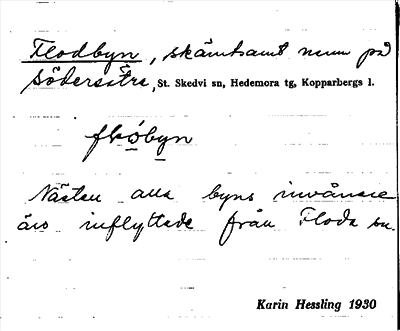 Flodbyn, skämtsamt namn på
Södersätra, St. Skedvi sn, Hedemora tg, Kopparbergs l.
flobyn
Nästan alla byns invånare
äro inflyttade från Floda sn.
Karin Hessling 1930